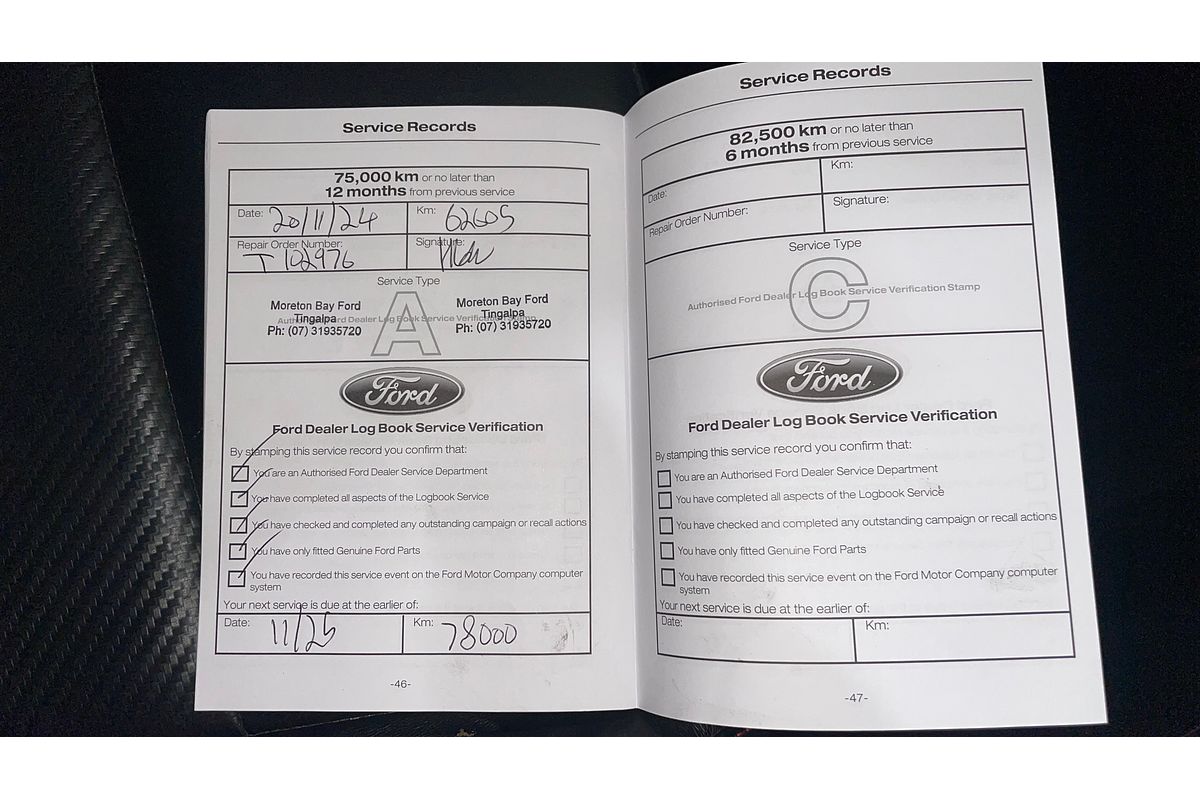 Service Records
75,000 km or no later than
12 months from previous service
Date: 20/11/24 Km: 62605
Repair Order Number: T 102976 Signature:
Service Type
A
Moreton Bay Ford
Tingalpa
Ph: (07) 31935720
Moreton Bay Ford
Tingalpa
Ph: (07) 31935720
Authorised Ford Dealer Log Book Service Verification Stamp
Ford
Ford Dealer Log Book Service Verification
By stamping this service record you confirm that:
You are an Authorised Ford Dealer Service Department
You have completed all aspects of the Logbook Service
You have checked and completed any outstanding campaign or recall actions
You have only fitted Genuine Ford Parts
You have recorded this service event on the Ford Motor Company computer
system
Your next service is due at the earlier of:
Date: 11/25 Km: 78000
-46-
Service Records
82,500 km or no later than
6 months from previous service
Date: Km:
Repair Order Number: Signature:
Service Type
C
Authorised Ford Dealer Log Book Service Verification Stamp
Ford
Ford Dealer Log Book Service Verification
By stamping this service record you confirm that:
You are an Authorised Ford Dealer Service Department
You have completed all aspects of the Logbook Service
You have checked and completed any outstanding campaign or recall actions
You have only fitted Genuine Ford Parts
You have recorded this service event on the Ford Motor Company computer
system
Your next service is due at the earlier of:
Date: Km:
-47-